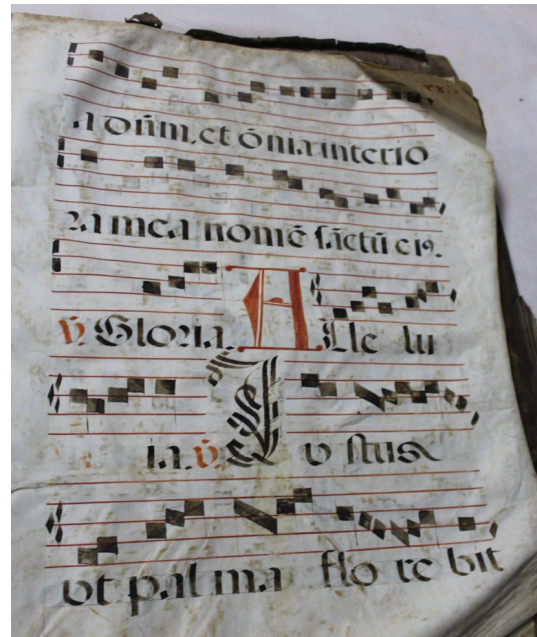 a dn̄m, et ōnia interio
ra mea nomē sāctū eiꝰ.
℣ Gloria. Alle lu
ia. ℣ Iustus
ut palma florebit